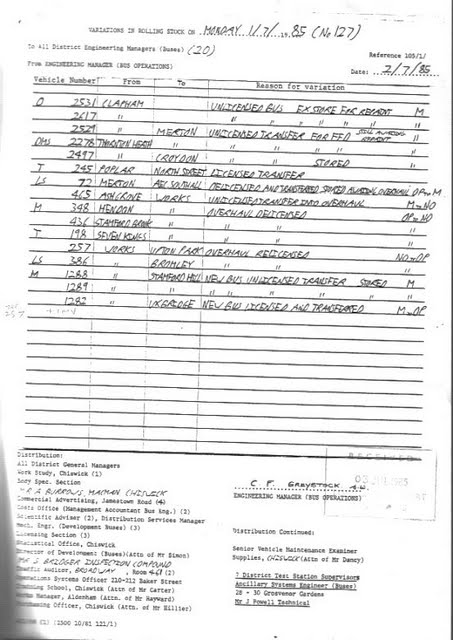 VARIATIONS IN ROLLING STOCK ON MONDAY 1/7/ 1985 (No 127)
To All District Engineering Managers (Buses) (20)
Reference 105/1/
From ENGINEERING MANAGER (BUS OPERATIONS)
Date: 2/7/85
Vehicle Number From To Reason for variation
O 2531 CLAPHAM UNLICENSED BUS EX STORE FOR REPAINT M
2617 " " " " " " "
2529 " MERTON UNLICENSED TRANSFER FOR FFD
DMS 2278 THORNTON HEATH " " " " "
2497 " CROYDON " " STORED "
T 245 POPLAR NORTH STREET LICENSED TRANSFER
LS 72 MERTON AEC SOUTHALL DELICENSED AND TRANSFERRED STORED AWAITING OVERHAUL OP to M
465 ASH GROVE WORKS UNLICENSED TRANSFER INTO OVERHAUL M to NO
M 348 HENDON " OVERHAUL DELICENSED OP to NO
436 STAMFORD BROOK " " " "
T 198 SEVEN KINGS " " " "
257 WORKS UPTON PARK OVERHAUL RELICENSED NO to OP
LS 386 " BROMLEY " " "
M 1288 " STAMFORD HILL NEW BUS UNLICENSED TRANSFER STORED M
1289 " " " " " " "
1282 " UXBRIDGE NEW BUS LICENSED AND TRANSFERRED M to OP
Distribution:
All District General Managers
Work Study, Chiswick (1)
Body Spec. Section
MR A BURROWS, MACMAN CHISWICK
Commercial Advertising, Jamestown Road (4)
Costs Office (Management Accountant Bus Eng.) (2)
Scientific Adviser (2), Distribution Services Manager
Mech. Engr. (Development Buses) (3)
Licensing Section (3)
Statistical Office, Chiswick
Director of Development (Buses)(Attn of Mr Dimon)
MR S BRIDGER INSPECTION COMPOUND
Traffic Auditor, BROADWAY, Room (2)
Operations Systems Officer 210-212 Baker Street
Training School, Chiswick (Attn of Mr Carter)
Works Manager, Aldenham (Attn. of Mr Hayward)
Purchasing Officer, Chiswick (Attn of Mr Hillier)
(1500 10/81 121/1)
RECEIVED
03 JUL 1985
C. F. GRAVSTOCK
ENGINEERING MANAGER (BUS OPERATIONS)
Distribution Continued:
Senior Vehicle Maintenance Examiner
Supplies, CHISWICK (Attn of Mr Dancy)
7 District Test Station Supervisors
Ancillary Systems Engineer (Buses)
28 - 30 Grosvenor Gardens
Mr J Powell Technical